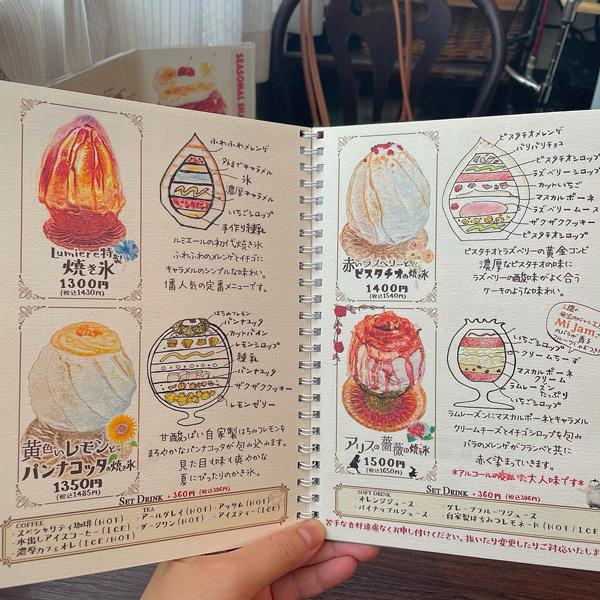 SEASONAL
ふわふわメレンゲ
キャラメル
氷
濃厚キャラメル
いちごシロップ
手作り練乳
Lumiere特製
焼き氷
1300円
(税込1430円)
ルミエールの初代焼き氷
ふわふわのメレンゲとイチゴに
キャラメルのシンプルな味わい。
1番人気の定番メニューです。
はちみつレモン
パンナコッタ
カットパイン
レモンシロップ
練乳
パンナコッタ
ザクザククッキー
レモンゼリー
黄色いレモンと
パンナコッタの焼き氷
1350円
(税込1485円)
甘酸っぱい自家製はちみつレモンを
まろやかなパンナコッタが包み込みます。
見た目も味も爽やかな
夏にぴったりのかき氷。
SET DRINK +360円 (税込396円)
COFFEE
・スペシャリティ珈琲(HOT)
・水出しアイスコーヒー(ICE)
・濃厚カフェオレ(ICE/HOT)
TEA
・アールグレイ(HOT)
・アッサム(HOT)
・ダージリン(HOT)
・アイスティー(ICE)
ピスタチオメレンゲ
パリパリチョコ
ピスタチオシロップ
ラズベリーシロップ
カットいちご
マスカルポーネ
ラズベリームース
ザクザククッキー
ピスタチオシロップ
赤いラズベリーと
ピスタチオの焼き氷
1400円
(税込1540円)
ピスタチオとラズベリーの黄金コンビ
濃厚なピスタチオの味に
ラズベリーの酸味がよく合う
ケーキのような味わい。
Mi Jam
いちごシロップ
クリームチーズ
マスカルポーネ
クリーム
ラムレーズン
たっぷり
いちごシロップ
アリスの薔薇の焼き氷
1500円
(税込1650円)
ラムレーズンにマスカルポーネとキャラメル
クリームチーズとイチゴシロップを包み
バラのメレンゲがフランベと共に
赤く染まっていきます。
*アルコールの効いた大人味です*
SET DRINK +360円 (税込396円)
SOFT DRINK
・オレンジジュース
・パイナップルジュース
・グレープフルーツジュース
・自家製はちみつレモネード(HOT/ICE)
苦手な食材遠慮なくお申し付けください。抜いたり変更したりご対応いたします